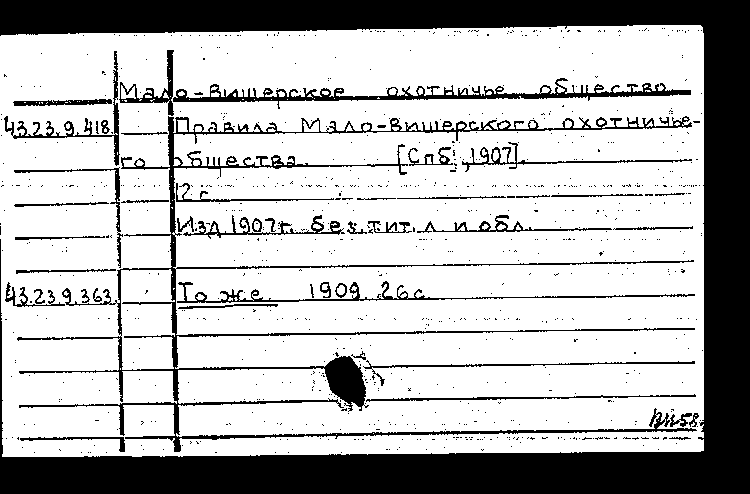 Мало-Вишерское охотничье общество.
43.23.9.418. Правила Мало-Вишерского охотничье-
го общества. [Спб., 1907].
12 с.
Изд. 1907г. без тит. л и обл.
43.23.9.363. То же. 1909. 26 с.